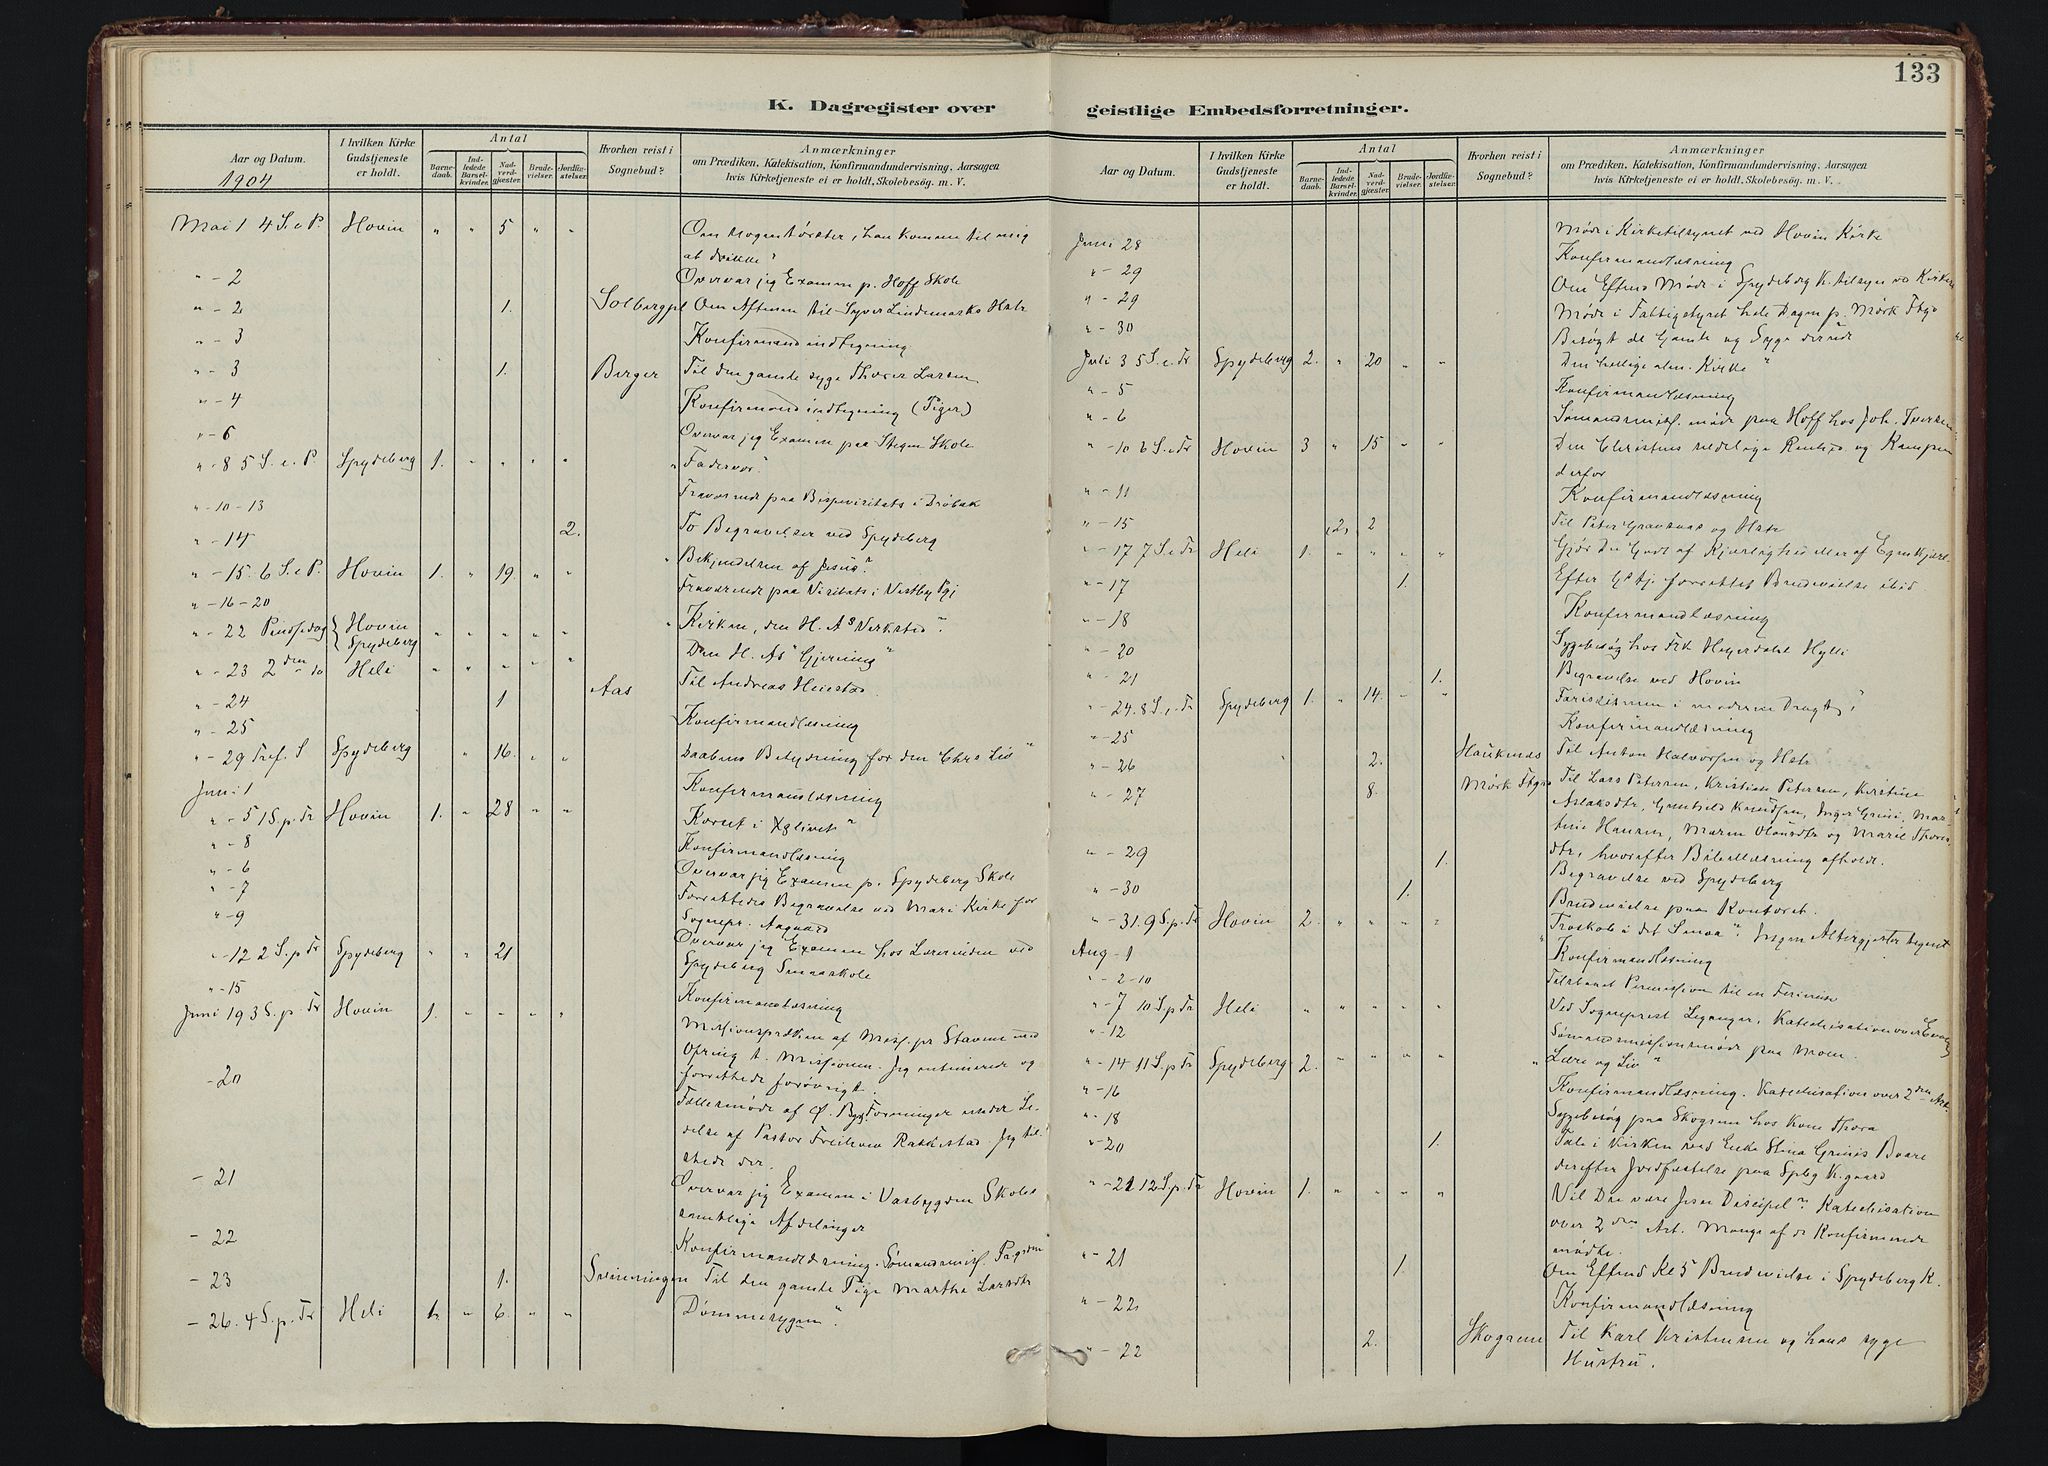 133
K. Dagregister over geistlige Embedsforretninger.
Aar og Datum. I hvilken Kirke Gudstjeneste er holdt. Antal Barnedaab. Indledede Barselkvinder. Nadverdgjæster. Brudevielser. Jordfæstelser. Hvorhen reist i Sognebud? Anmærkninger om Prædiken, Katekisation, Konfirmandundervisning, Aarsagen hvis Kirketjeneste ei er holdt, Skolebesøg. m. V.
1904
Mai 1 4 S. e P. Hovin " " 5 " " Om nogen tørster, han komme til mig
at drikke"
" - 2 Overvar jeg Examen p. Hoff Skole
" - 2 1. Solbergpl Om Aftenen til Syver Lindemarks Hstr
" - 3 Konfirmandindtegning
" - 3 1. Berger Til den gamle syge Larsen
" - 4 Konfirmandindtegning (Piger)
" - 6 Overvar jeg Examen paa Stegen Skole
" - 8 5 S. e. P. Spydeberg 1. " " " " "Fadervor"
" - 10 - 13 Fraværende paa Bispevisitats i Drøbak
" - 14 2. To Begravelser ved Spydeberg
" - 15. 6 S. e P. Hovin 1. " 19. " " "Bekjendelsen af Jesus"
" - 16 - 20 Fraværende paa Visitats i Vestby Pgj
" - 22 Pindsedag Hovin Spydeberg " " " " " "Kirken, den H. As Verksted".
" - 23 2den do Heli " " " " " Den H. As "Gjerning"
" - 24 1 Aas Til Andreas Heiestad.
" - 25 Konfirmandlæsning
" - 29 Tref. S Spydeberg " 16. " " Daabens Betydning for den Chrs Liv"
Juni 1 Konfirmandlæsning
" - 5 1 S. p. Tr Hovin 1. " 28 " " Korset i Xslivet"
" - 8 Konfirmandlæsning
" - 6 Overvar jeg Examen p. Spydeberg Skole
" - 7 Forrettedes Begravelse ved Mari Kirke for
" - 9 Sognepr. Aagaard
" - 12 2 S. p Tr Spydeberg " " 21 Overvar jeg Examen hos Lærerinden ved
Spydeberg Smaaskole
" - 15 Konfirmandlæsning
Juni 19 3 S. p. Tr Hovin 1. " " " " Missionspræken af Miss. pr Stavem med
Ofring t. Missionen. Jeg intimerede og
- 20 forrettede forøvrigt.
Fællesmøde af Ø. Foreninger under Le-
delse af Pastor Rakkestad. Jeg til-
stede der.
- 21 Overvar jeg Examen i Vasbygden Skoles
samtlige Afdelinger
- 22 Konfirmandlæsning. Sømandsmiss.
- 23 1. Sveneningen Til den gamle Pige Martha Larsdtr
- 26. 4 S. p. Tr Heli 1. " 6. " " "Dømmesygen".
Aar og Datum. I hvilken Kirke Gudstjeneste er holdt. Antal Barnedaab. Indledede Barselkvinder. Nadverdgjæster. Brudevielser. Jordfæstelser. Hvorhen reist i Sognebud? Anmærkninger om Prædiken, Katekisation, Konfirmandundervisning, Aarsagen hvis Kirketjeneste ei er holdt, Skolebesøg. m. V.
Juni 28 Møde i Kirketilsynet ved Hovin Kirke
" - 29 Konfirmandlæsning
" - 29 Om Eftmd Møde i Spydeberg K. tilsyn v Kirken
" - 30 Møde i Fattigstyret hele Dagen p. Mørk Ftgd
Besøgt de Gamle og Syge derude
Juli 3 5 S. e. Tr Spydeberg 2. " 20 " " Den hellige alm. Kirke"
" - 5 Konfirmandlæsning
" - 6 Sømandsmiss. møde paa Hoff hos Joh.
" - 10 6 S. e Tr Hovin 3 " 15 " " Den Christens Renhed og Kampen
derfor
" - 11 Konfirmandlæsning
" - 15 2 2 Til Peter Gravsnas og Hstr
" - 17 7 S. e Tr Heli 1. " " " " Gjør Du Godt af Kjærlighed eller af Egenkjærl.
" - 17 1. Efter Gstj. forrettet Brudevielse ibid.
" - 18 Konfirmandlæsning
" - 20 Sygebesøg hos Frk Heyerdahl Hylli
" - 21 1. Begravelse ved Hovin
" - 24. 8 S. e. Tr Spydeberg 1. " 14. " " Fariseismen i moderne Dragt"
" - 25 Konfirmandlæsning
" - 26 2. Hauknes Til Anton Halvorsen og Hstr
" - 27 8. Mørk Ftgd Til Lars Petersen, Kristian Petersen, Kirstine
Aslaksdtr, Gunhild Knudsen, Inger Grini, Mar-
tine Hansen, Maren Olausdtr og Maril Thores-
dtr, hvorefter Bibellæsning afholdt.
" - 29 1. Begravelse ved Spydeberg
" - 30 1. Brudevielse paa Kontoret.
" - 31. 9 S. p. Tr Hovin 2. " " " " "Troskab i det Smaa". Ingen Altergjæster tegnet
Aug - 1 Konfirmandlæsning
" - 2-10 Tilstaaet Permission til en Feriereise
" - 7 10 S. p Tr Heli " " " " " Ved Sogneprest Leganger, Katechisation over Evang
" - 12 Sømandsmissionsmøde paa Moen.
" - 14 11 S. p Tr Spydeberg 2. " " " " "Lære og Liv"
" - 16 Konfirmandlæsning. Katechisation over 2den Art.
" - 18 Sygebesøg paa Skogen hos Kone Thora
" - 20 1. Tale i Kirken ved Enke Stina Grinis Baare
derefter Jordfæstelse paa Spbg K.gaard
" - 21 12 S. p. Tr Hovin 1. " " " " Vil Du være Jesu Discipel" Katechisation
over 2den Art. Mange af de Konfirmerede
mødte.
" - 21 1. Om Eftmd Kl 5 Brudevielse i Spydeberg K.
" - 22 Konfirmandlæsning
" - 22 2. Skogene Til Karl Kristensen og hans syge
Hustru.